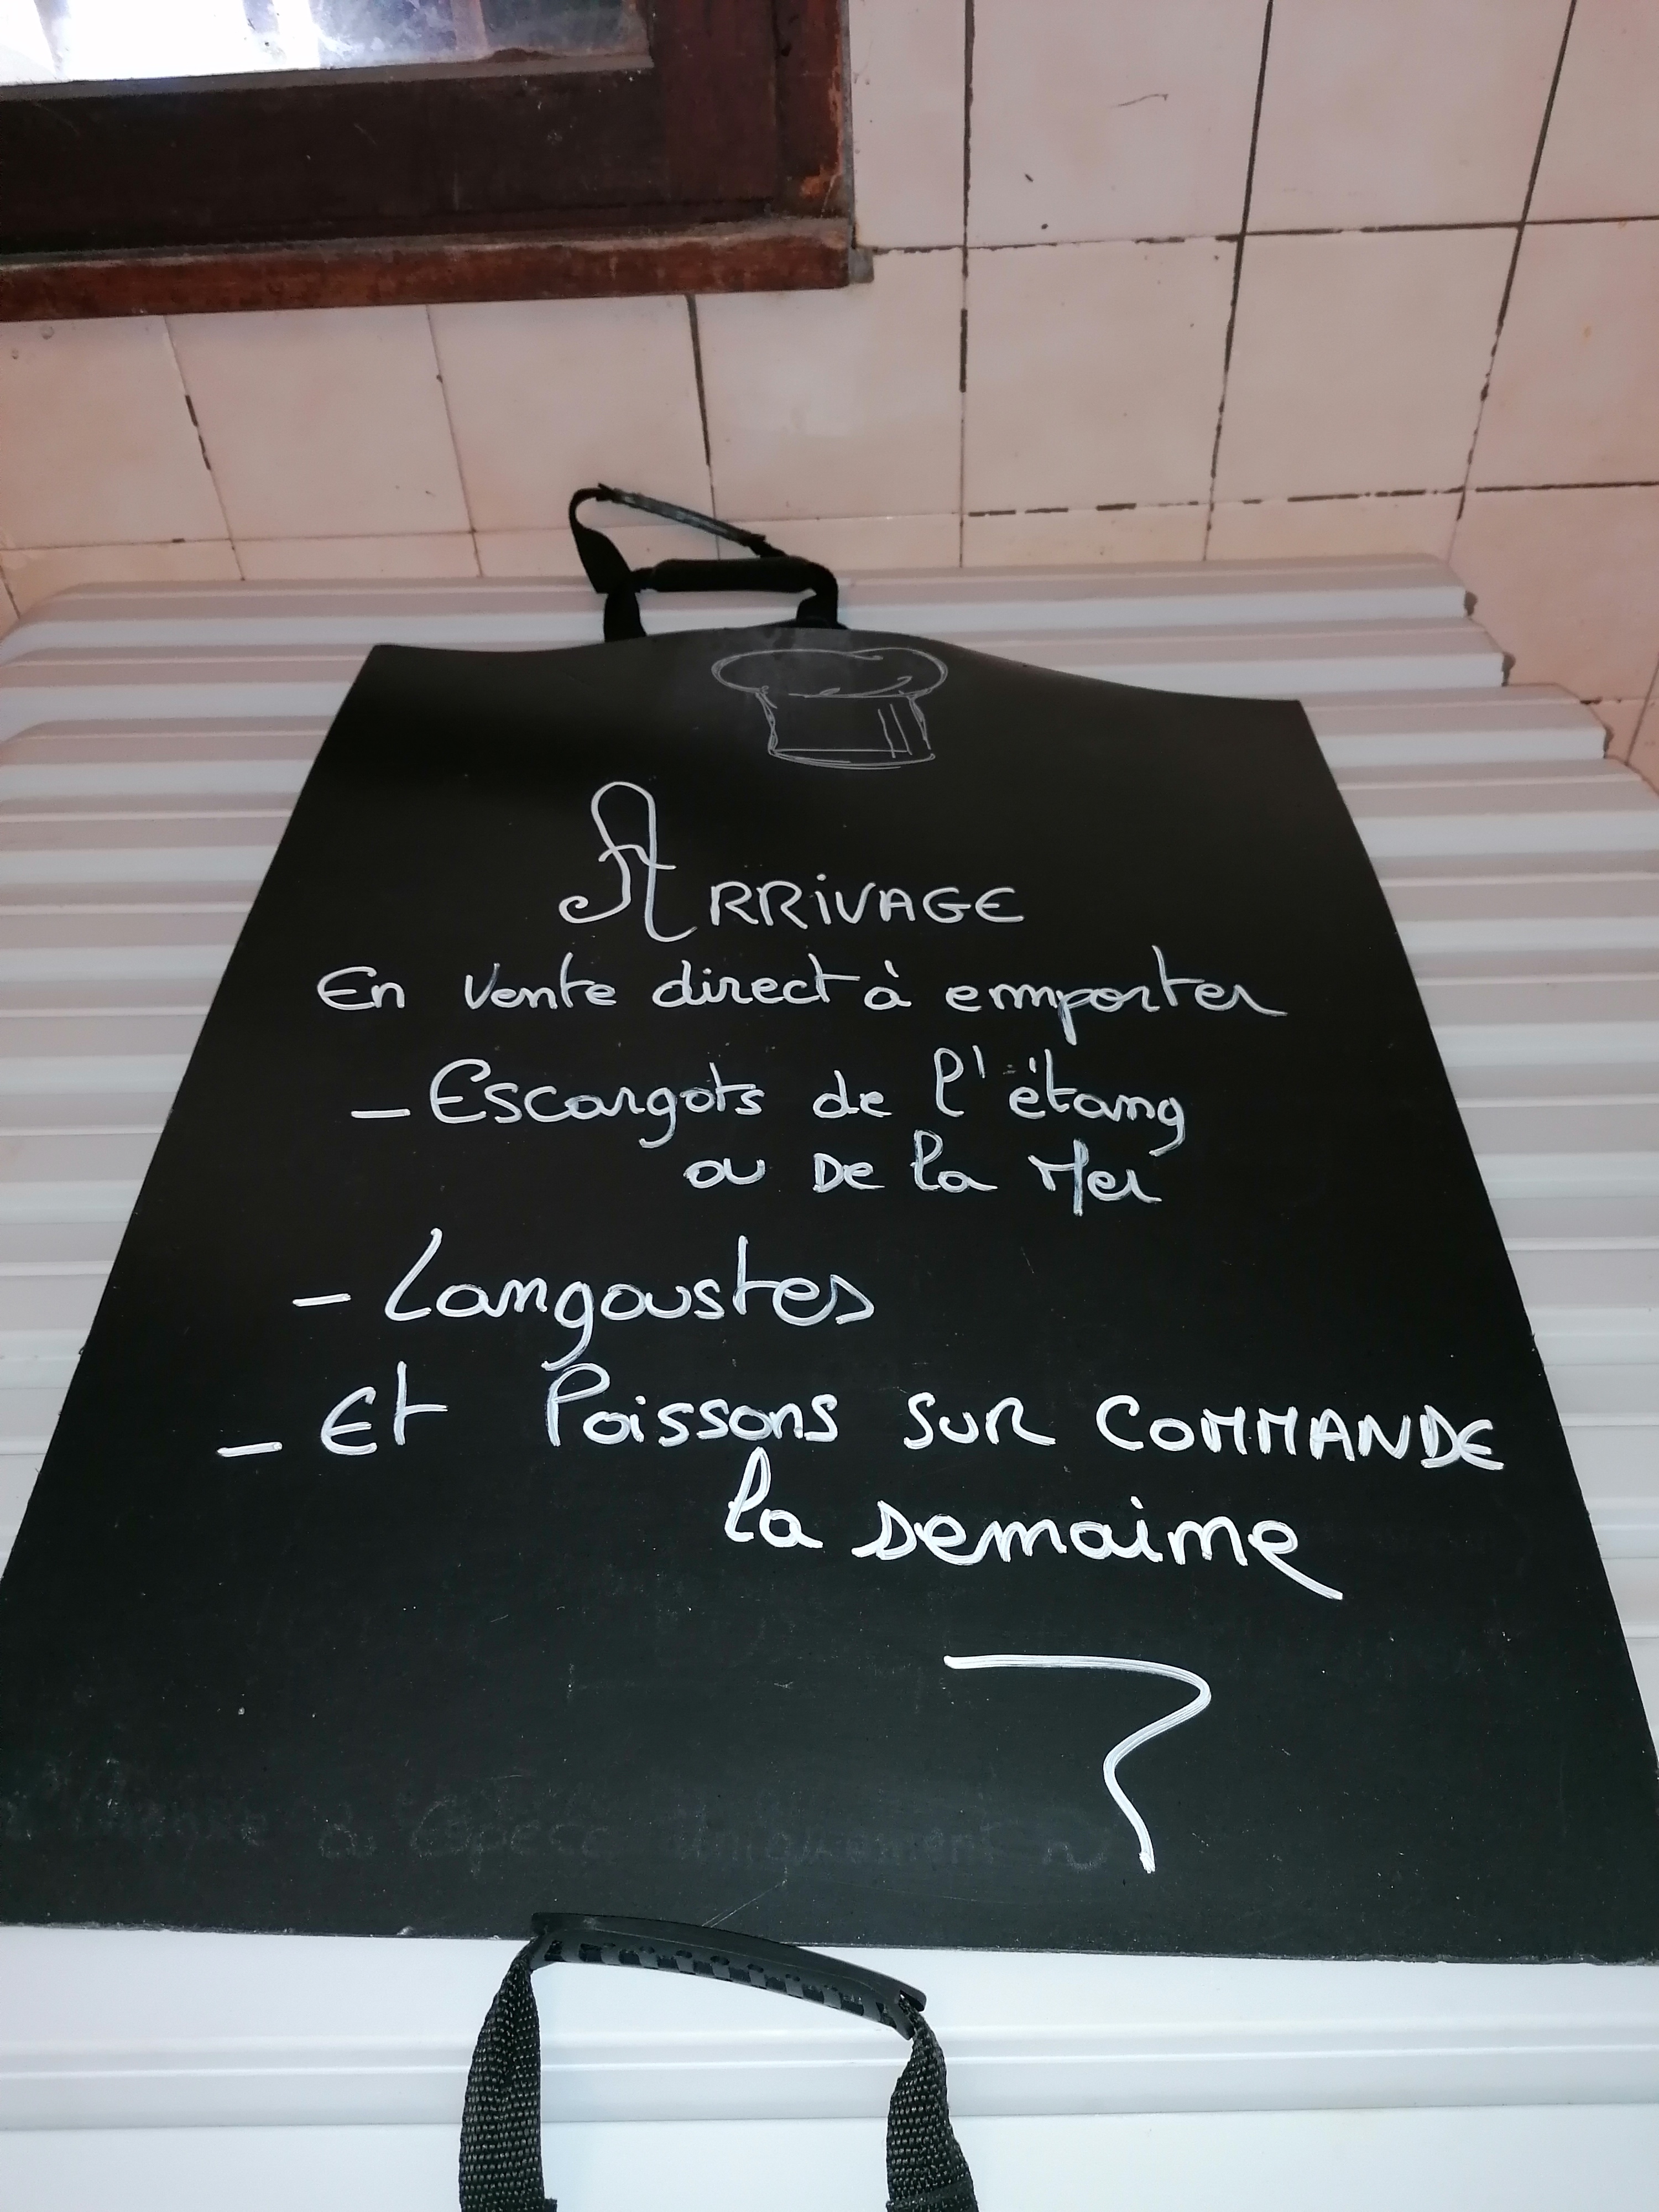 ARRIVAGE
En vente direct à emporter
- Escargots de l'étang
ou De la Mer
- Langoustes
- Et Poissons SUR COMMANDE
la semaine